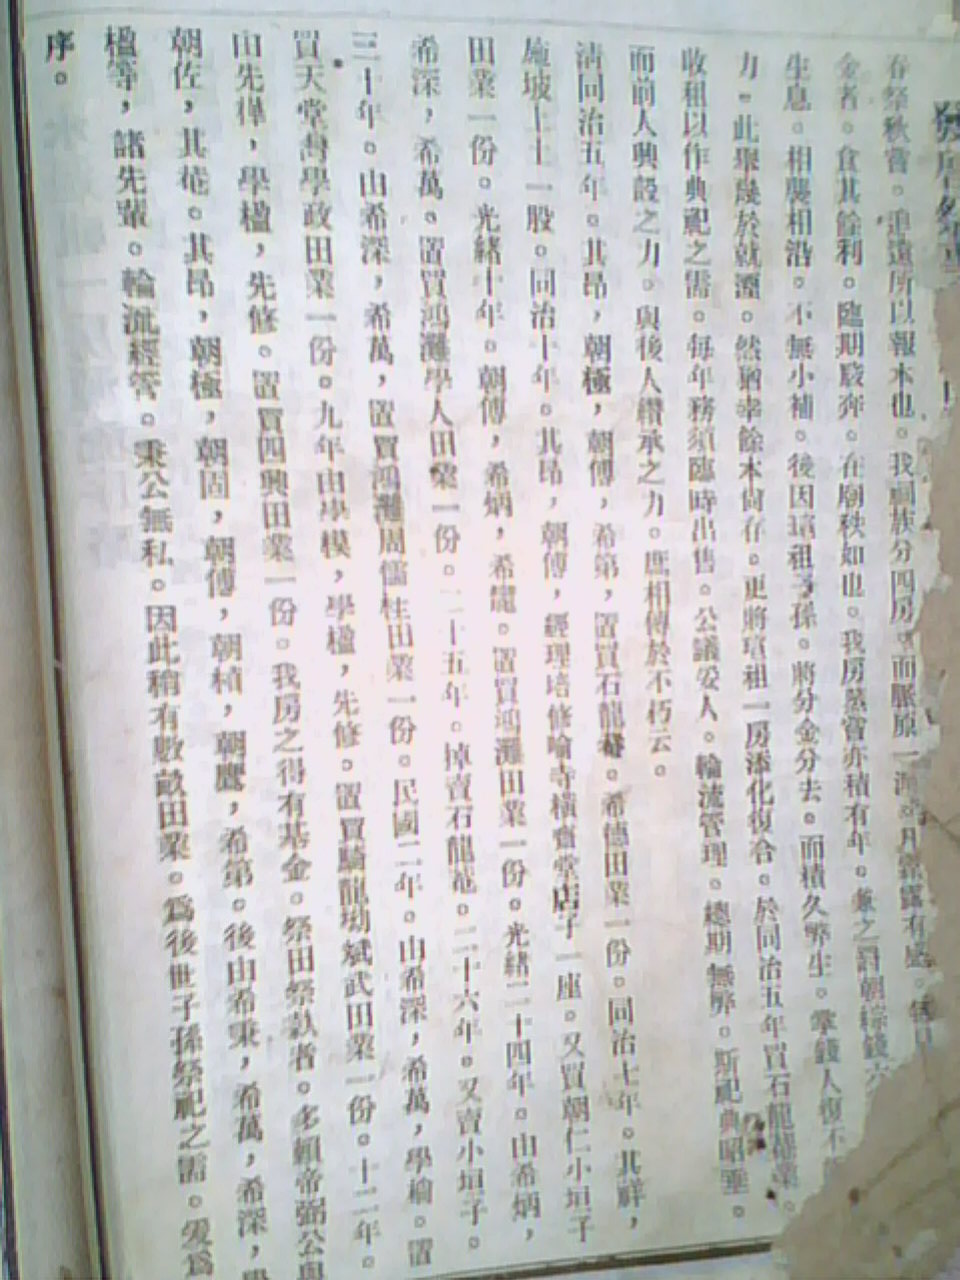 春祭秋嘗。追遠所以報本也。我祠族分四房。而脈原一 月霜露有感。
金者。食其餘利。臨期駿奔。在廟秩如也。我房蒸嘗亦積有年。兼之 朝綜錢六
生息。相襲相沿。不無小補。後因 祖子孫。將分金分去。而積久弊生。掌錢人復不
力。此舉幾於就湮。然猶幸餘本尚存。更將 祖一房添化復合。於同治五年買石龍菴業。
收租以作典祀之需。每年務須臨時出售。公議妥人。輪流管理。總期無弊。斯祀典昭垂。
而前人興設之力。與後人纘承之力。庶相傳於不朽云。
清同治五年。其昂,朝極,朝傅,希第,置買石龍菴。希德田業一份。同治七年。其祥,
施坡土土一股。同治十年。其昂,朝傅,經理培修 寺橫齋堂店子一座。又買朝仁小垣子
田業一份。光緒十年。朝傅,希炳,希寵。置買鴻灘田業一份。光緒二十四年。由希炳,
希深,希萬。置買鴻灘學人田業一份。二十五年。掉賣石龍菴。二十六年。又賣小垣子。
三十年。由希深,希萬,置買鴻灘周儒柱田業一份。民國二年。由希深,希萬,學 。置
買天堂灣學政田業一份。九年由學模,學楹,先修。置買騎龍 斌武田業一份。十二年。
由先 ,學楹,先修。置買四興田業一份。我房之得有基金。祭田祭款者。多賴帝弼公與
朝佐,其菴。其昂,朝極,朝固,朝傅,朝楨,朝鷹,希第。後由希秉,希萬,希深,學
楹等,諸先輩。輪流經營。秉公無私。因此稍有數畝田業。為後世子孫祭祀之需。爰為
序。